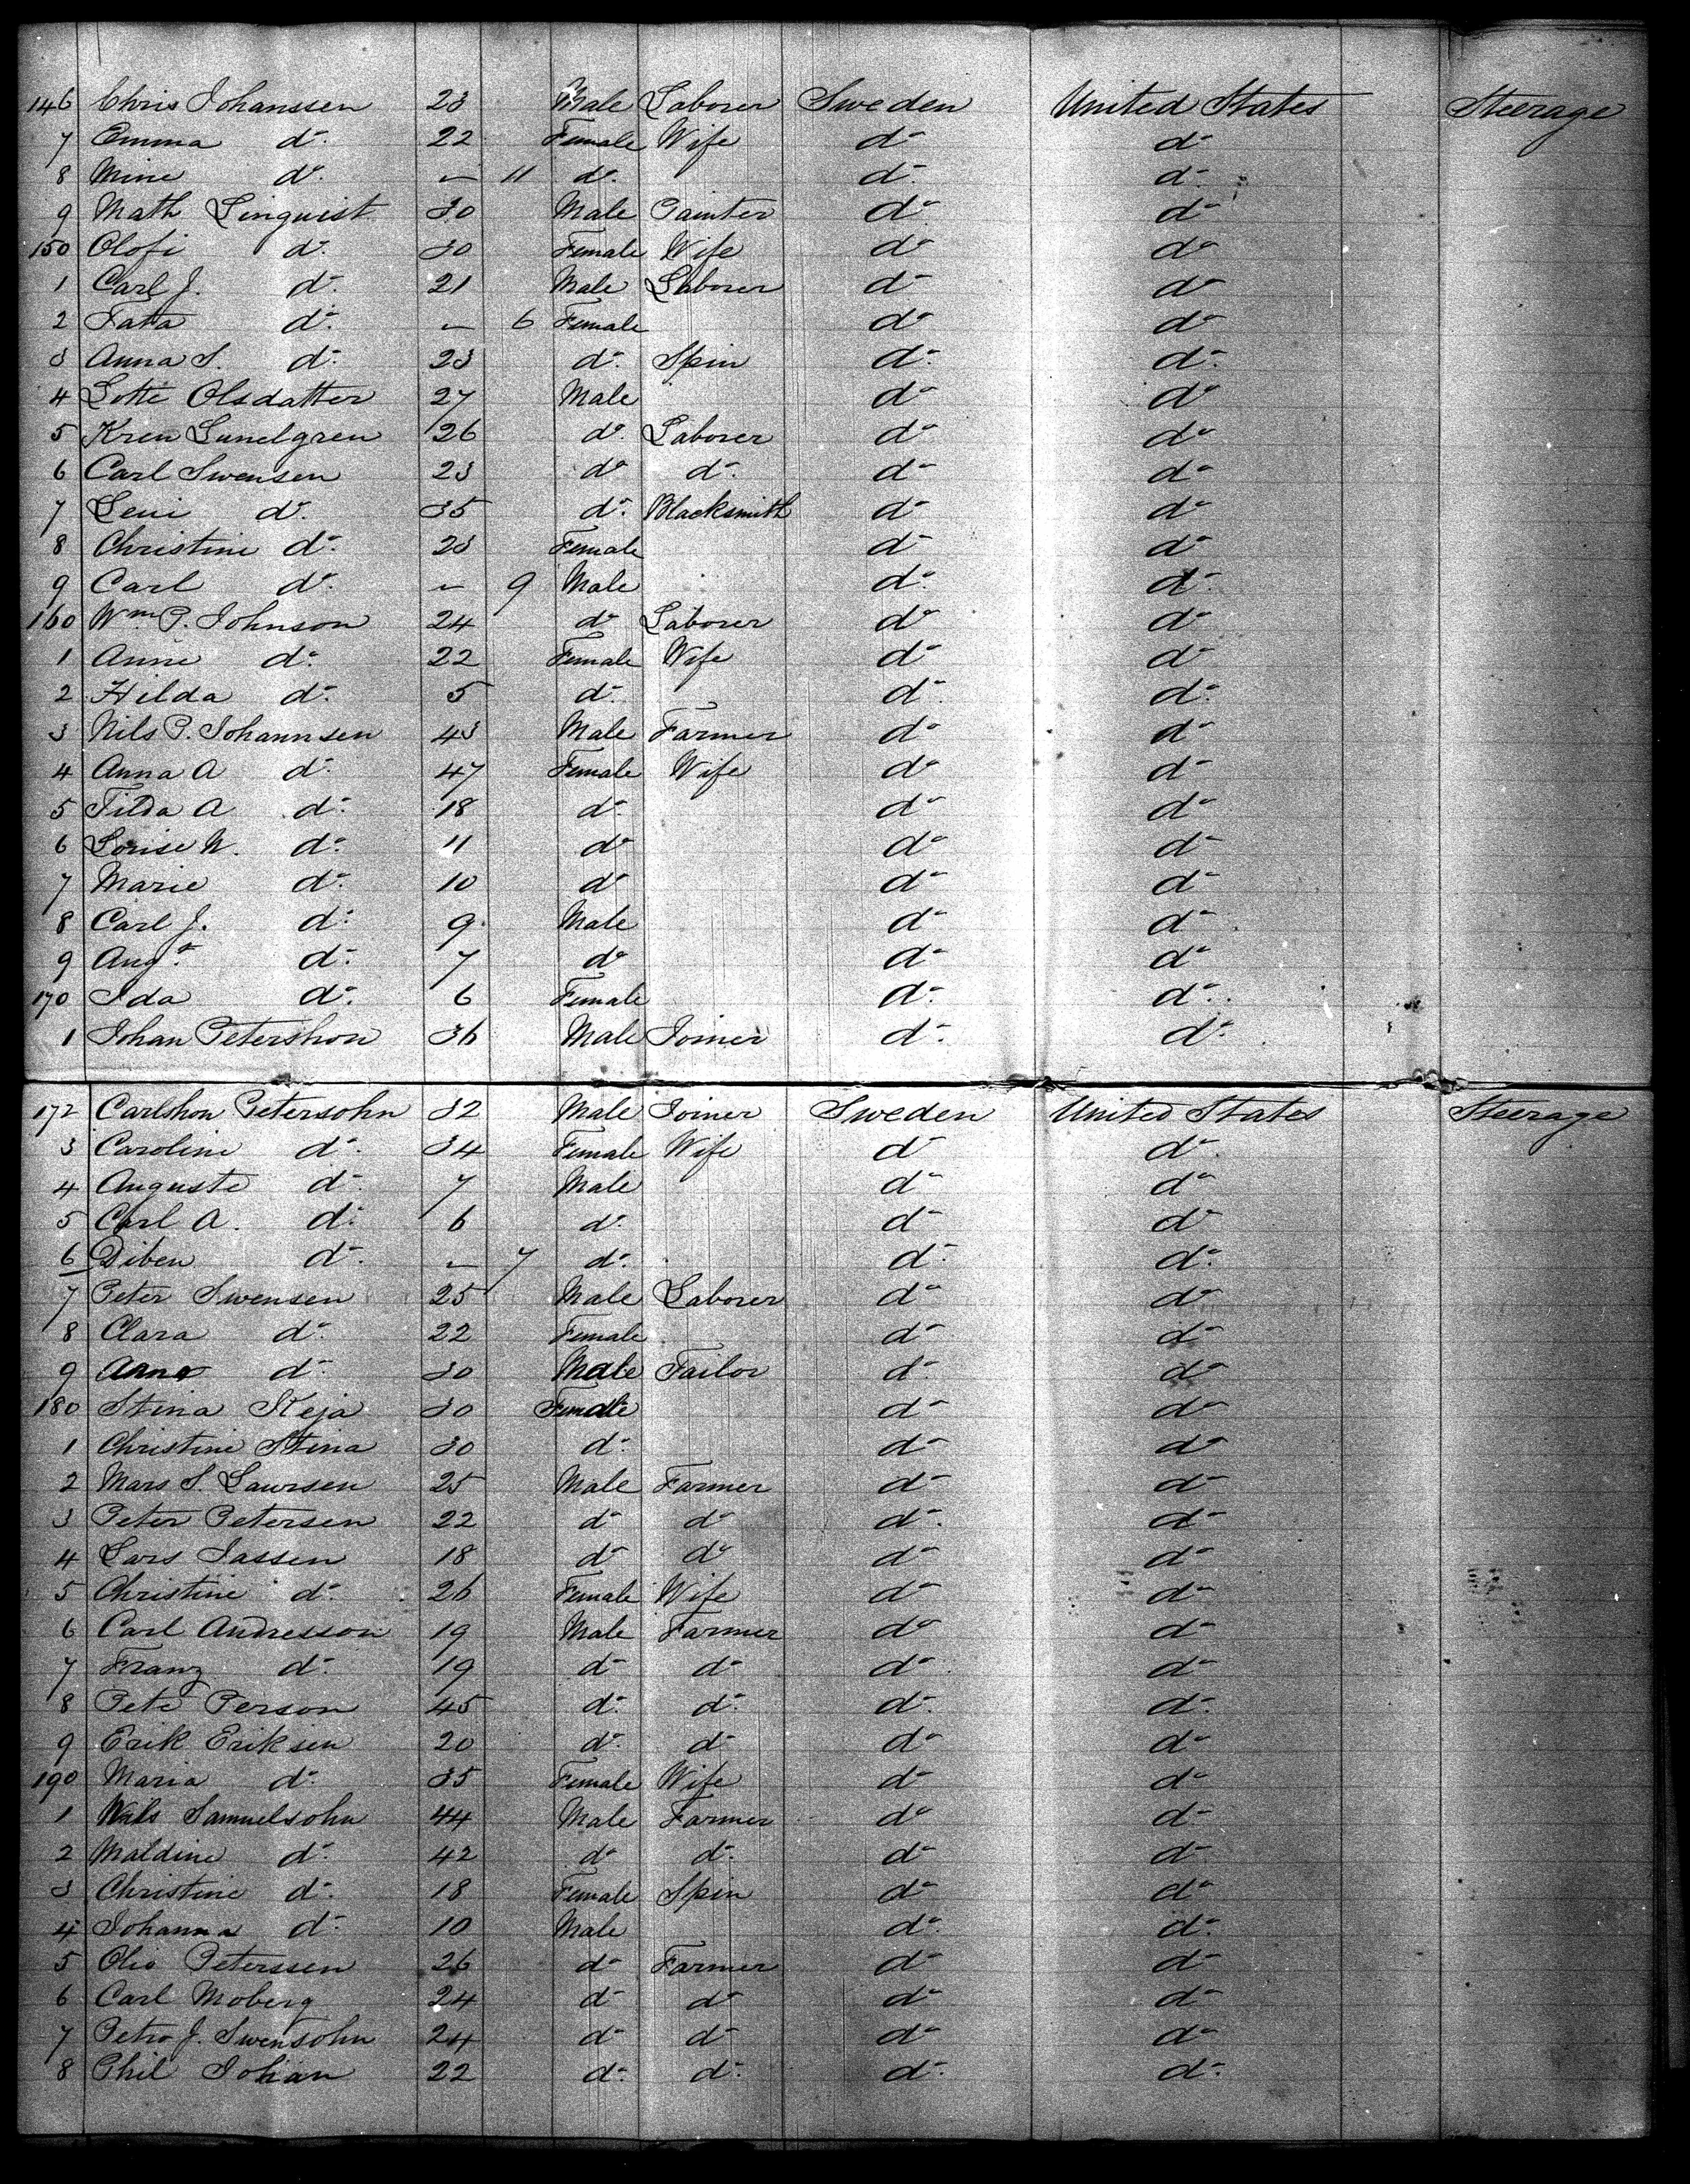 146 Chris Johanssen 23 Male Laborer Sweden United States Steerage
7 Emma do. 22 Female Wife do do
8 Mine do. - 11 do. do. do.
9 Math Linquist 30 Male Painter do do
150 Olofi do. 30 Female Wife do do
1 Carl J. do. 21 Male Laborer do do
2 Tata do. - 6 Female do do
3 Anna S. do. 23 do. Spin do. do.
4 Lotte Olsdatter 27 Male do do
5 Kren Lundgren 26 do. Laborer do do
6 Carl Swensen 23 do do. do do
7 Leui do. 35 do. Blacksmith do do
8 Christine do. 23 Female do do
9 Carl do. - 9 Male do. do.
160 Wm P. Johnson 24 do Laborer do do
1 Anne do. 22 Female Wife do do
2 Hilda do. 5 do. do. do.
3 Nils P. Johannsen 43 Male Farmer do do
4 Anna A do. 47 Female Wife do do
5 Tilda A do. 18 do. do do
6 Louise N. do. 11 do do do
7 Marie do. 10 do do do
8 Carl J. do. 9 Male do do.
9 Augt. do. 7 do do do
170 Ida do. 6 Female do. do.
1 Johan Petershon 36 Male Joiner do. do.
172 Carlshon Petersohn 32 Male Joiner Sweden United States Steerage
3 Caroline do. 34 Female Wife do do.
4 Auguste do. 7 Male do do
5 Carl A. do. 6 do. do do
6 Diben do. - 7 do. do. do.
7 Peter Swensen 25 Male Laborer do do
8 Clara do. 22 Female do do
9 Anna do. 30 Male Tailor do. do
180 Stina Keja 30 Female do do
1 Christine Stina 30 do. do do
2 Mars S. Laursen 25 Male Farmer do do
3 Peter Petersen 22 do do do. do
4 Lars Jassen 18 do do do do
5 Christine do. 26 Female Wife do do
6 Carl Andresson 19 Male Farmer do do
7 Franz do. 19 do do do do
8 Pete Person 45 do. do. do. do.
9 Erik Eriksen 20 do. do do do
190 Maria do. 35 Female Wife do do
1 Nils Samuelsohn 44 Male Farmer do do
2 Maldine do. 42 do do. do do
3 Christine do. 18 Female Spin do do
4 Johanna do. 10 Male do. do.
5 Olio Peterssen 26 do Farmer do do
6 Carl Moberg 24 do do do do
7 Petro J. Swensohn 24 do do do do
8 Phil Johan 22 do. do. do. do.